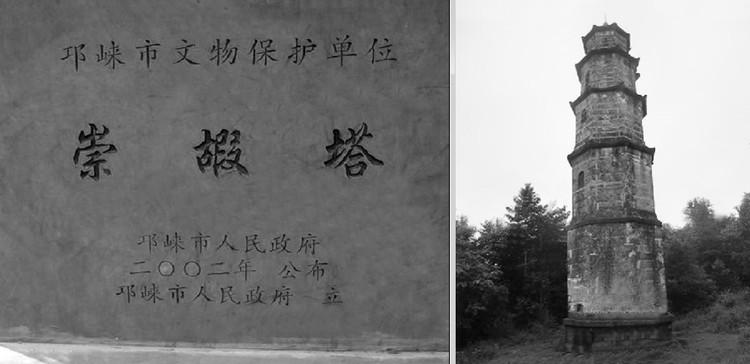 邛崃市文物保护单位
崇嘏塔
邛崃市人民政府
二〇〇二年 公布
邛崃市人民政府 立